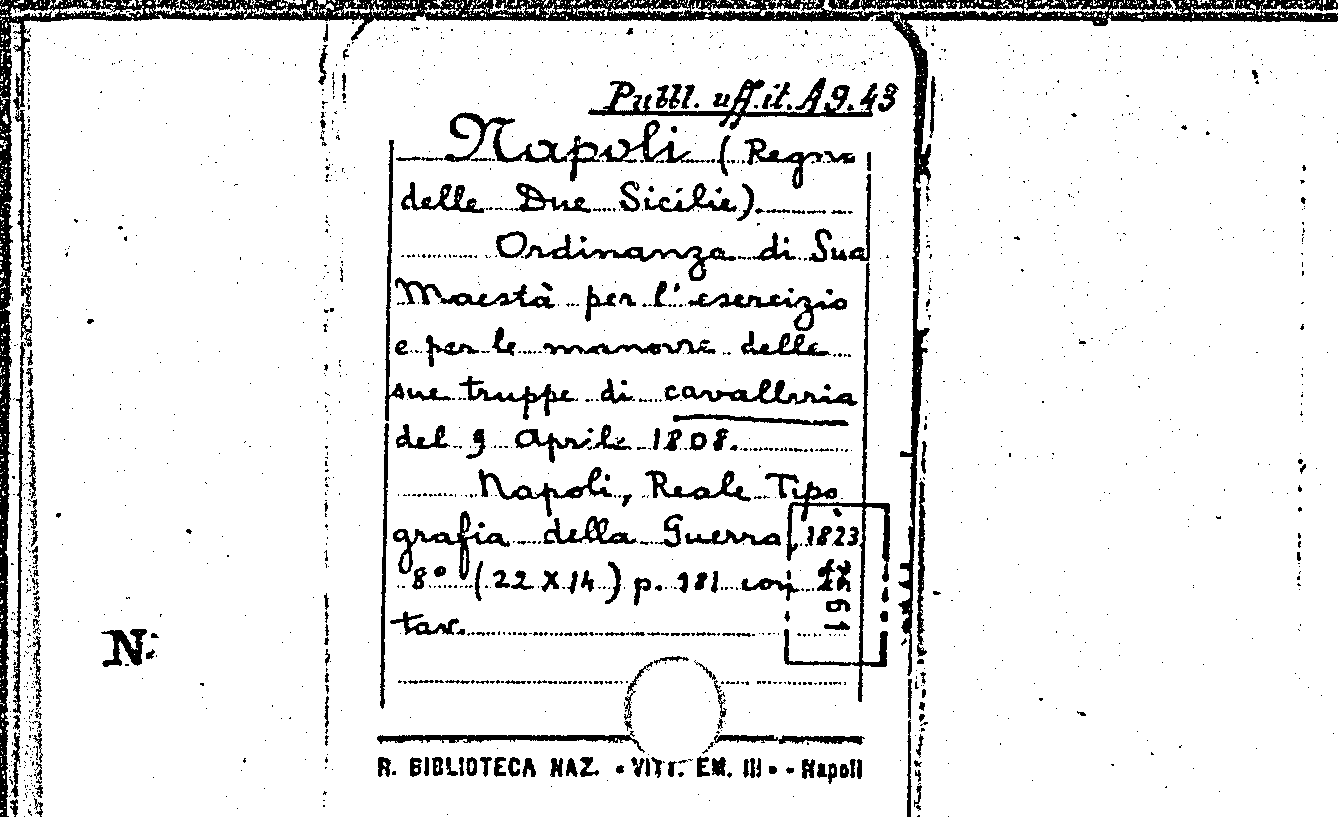 Pubbl. uff. it. A9.43
Napoli (Regno
delle Due Sicilie).
Ordinanza di Sua
Maestà per l'esercizio
e per le manovre delle
sue truppe di cavalleria
del 9 Aprile 1808.
Napoli, Reale Tipo
grafia della Guerra, 1823
8° (22 X 14) p. 181 con
tav.
N.
R. BIBLIOTECA NAZ. "VITT. EM. III" - Napoli